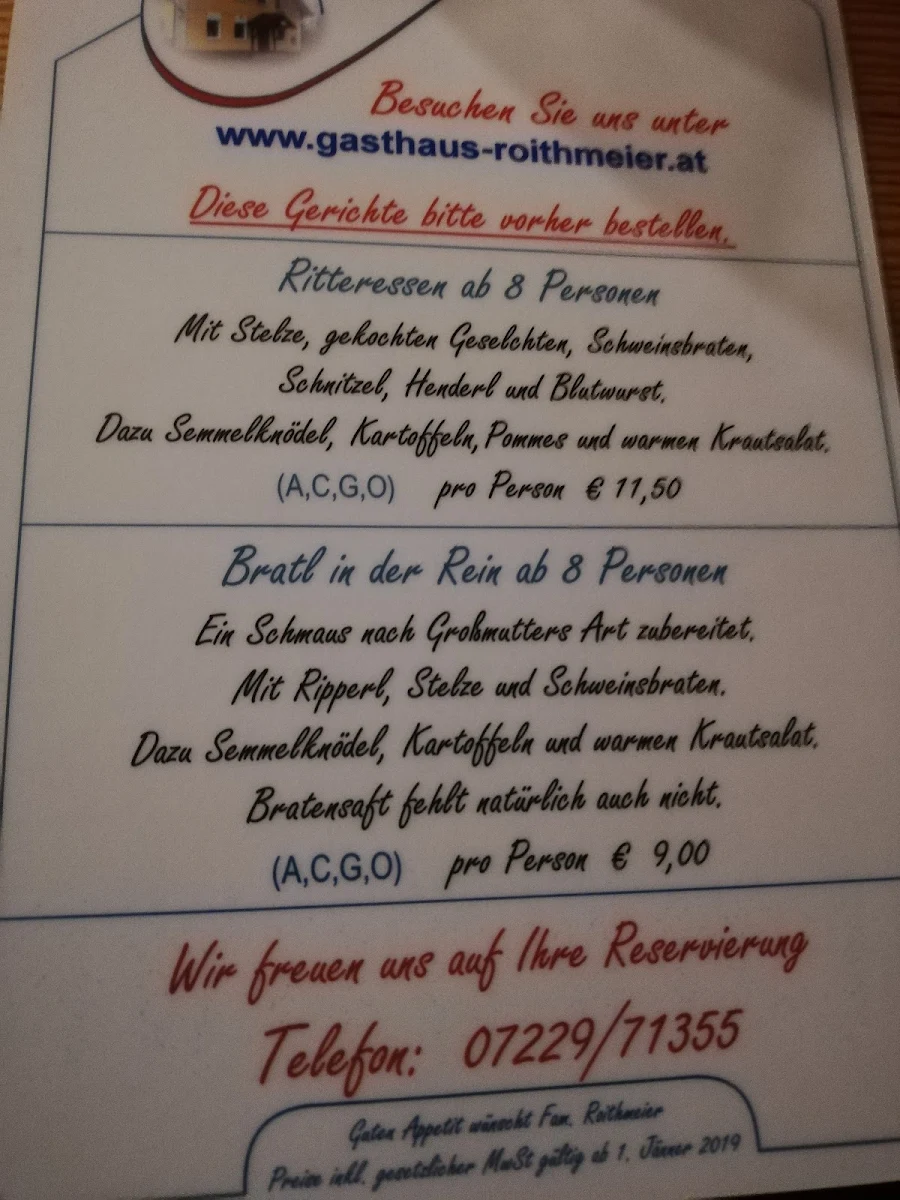 Besuchen Sie uns unter
www.gasthaus-roithmeier.at
Diese Gerichte bitte vorher bestellen.
Ritteressen ab 8 Personen
Mit Stelze, gekochten Geselchten, Schweinsbraten,
Schnitzel, Henderl und Blutwurst.
Dazu Semmelknödel, Kartoffeln, Pommes und warmen Krautsalat.
(A,C,G,O) pro Person € 11,50
Bratl in der Rein ab 8 Personen
Ein Schmaus nach Großmutters Art zubereitet.
Mit Ripperl, Stelze und Schweinsbraten.
Dazu Semmelknödel, Kartoffeln und warmen Krautsalat.
Bratensaft fehlt natürlich auch nicht.
(A,C,G,O) pro Person € 9,00
Wir freuen uns auf Ihre Reservierung
Telefon: 07229/71355
Guten Appetit wünscht Fam. Roithmeier
Preise inkl. gesetzlicher MwSt gültig ab 1. Jänner 2019